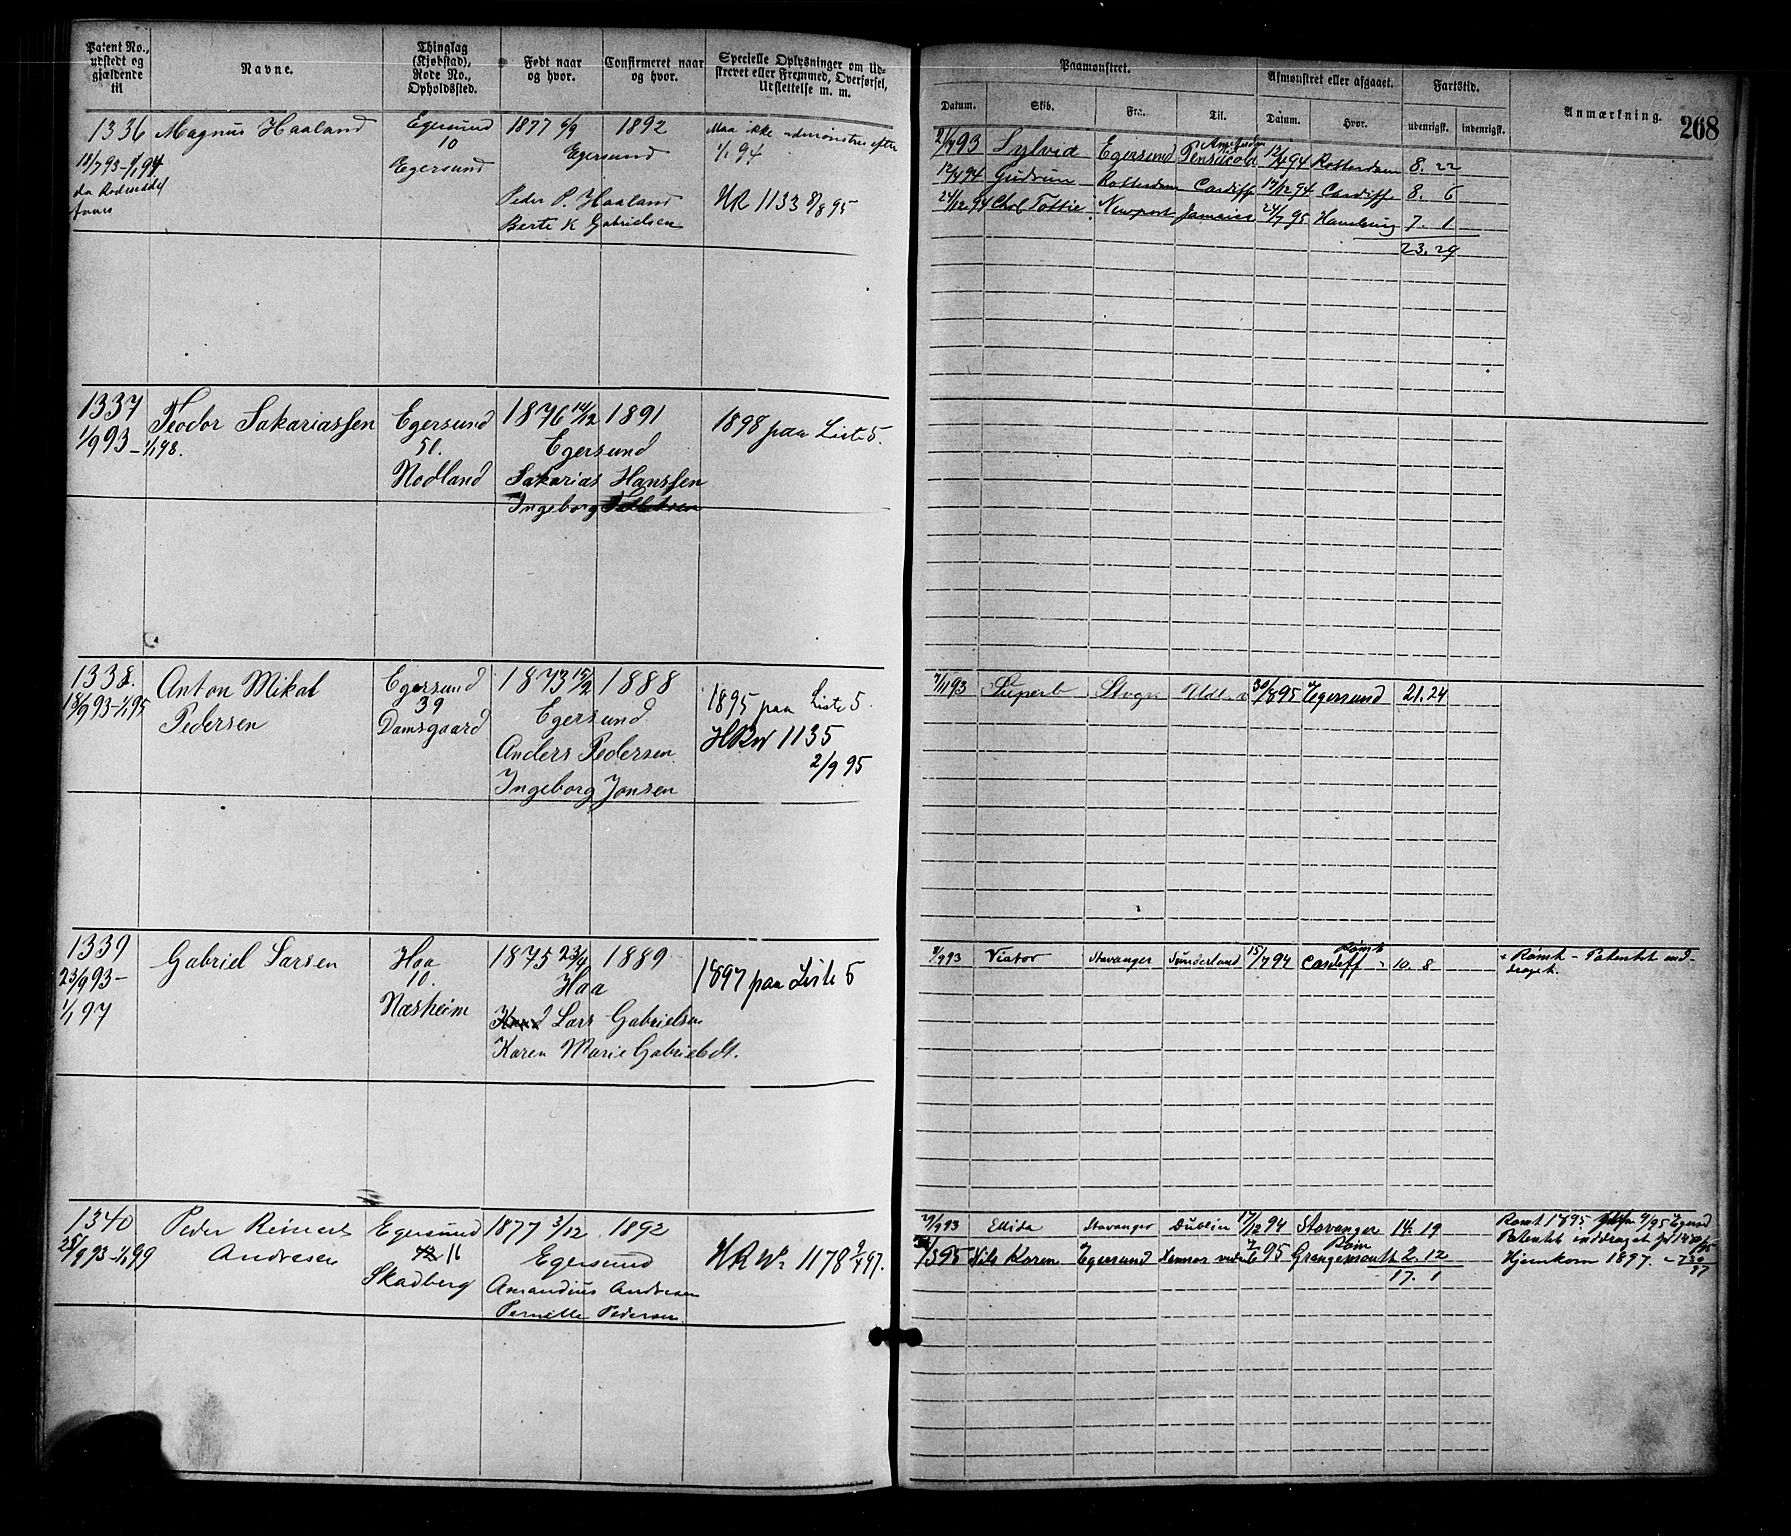 Patent No., udstedt og gjældende til
Navne.
Thinglag (Kjøbstad), Rode No., Opholdssted.
Født naar og hvor.
Confirmeret naar og hvor.
Specielle Oplysninger om Udstrevet eller Fremmed, Overførsel, Udslettelse m. m.
Paamønstret.
Afmønstret eller afgaaet.
Fartstid.
Anmærkning.
268
Datum.
Skib.
Fra.
Til.
Datum.
Hvor.
udenrigsk.
indenrigsk.
1336 Magnus Haaland Egersund 1877 6/9 1892 Maa ikke udmønstres efter
18/7 93 - 1/1 94 10 Egersund 1/1 94
Egersund
Peder P. Haaland HR 1133 8/8 95
Berte K Gabrielsen
93 Sylvia Egersund Pensacola 94 Rotterdam 8. 22
94 Gudrun Rotterdam Cardiff 17/12 94 Cardiff 8. 6
24/12 94 Tottie Newport Jamaica 24/7 95 Hamburg 7. 1
23. 29
1337 Teodor Sakariassen Egersund 1876 14/12 1891 1898 paa Liste 5.
1/9 93 - 1/1 98. 51. Egersund
Nodland Sakarias Hanssen
Ingeborg
1338. Anton Mikal Egersund 1873 15/2 1888 1895 paa Liste 5.
18/9 93 - 1/1 95 Pedersen 39 Egersund
Damsgaard Anders Pedersen HR No 1135
Ingeborg Jonsen 2/9 95
7/11 93 Superb Stvgr 30/8 95 Egersund 21. 24
1339 Gabriel Larsen Haa 1875 23/4 1889 1897 paa Liste 5
23/9 93 - 10. Haa
1/1 97 Næsheim Lars Gabrielsen
Karen Marie Gabrielsdt.
93 Viator Stavanger Sunderland 15/7 94 Rømt Cardiff 10. 8
Rømt - Patentet inddraget.
1340 Peder Reinert Egersund 1877 3/12 1892 HR No 1178 97.
25/9 93 - 1/1 99 Andresen 16 Egersund
Skadberg Amandius Andresen
Pernille Pedersen.
93 Ellida Stavanger Dublin 17/12 94 Stavanger 14. 19
95 Nils Karen Egersund 95 Røm Grangemouth 2. 12
17. 1
Rømt 1895
Patentet inddraget
Hjemkom 1897.